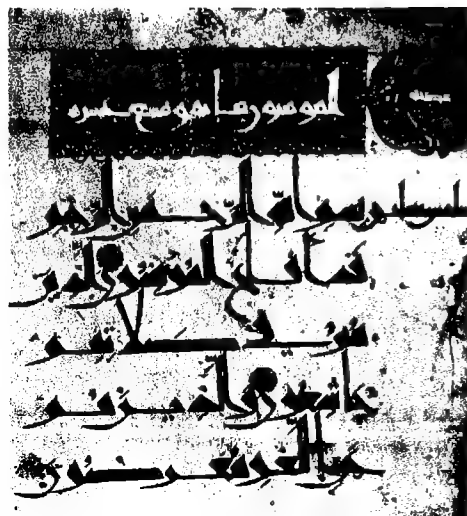 المومنون مايه وتسع عشره
بسم الله الرحمن الرحيم
قد أفلح المؤمنون الذين
هم في صلاتهم
خاشعون والذين هم
عن اللغو معرضون